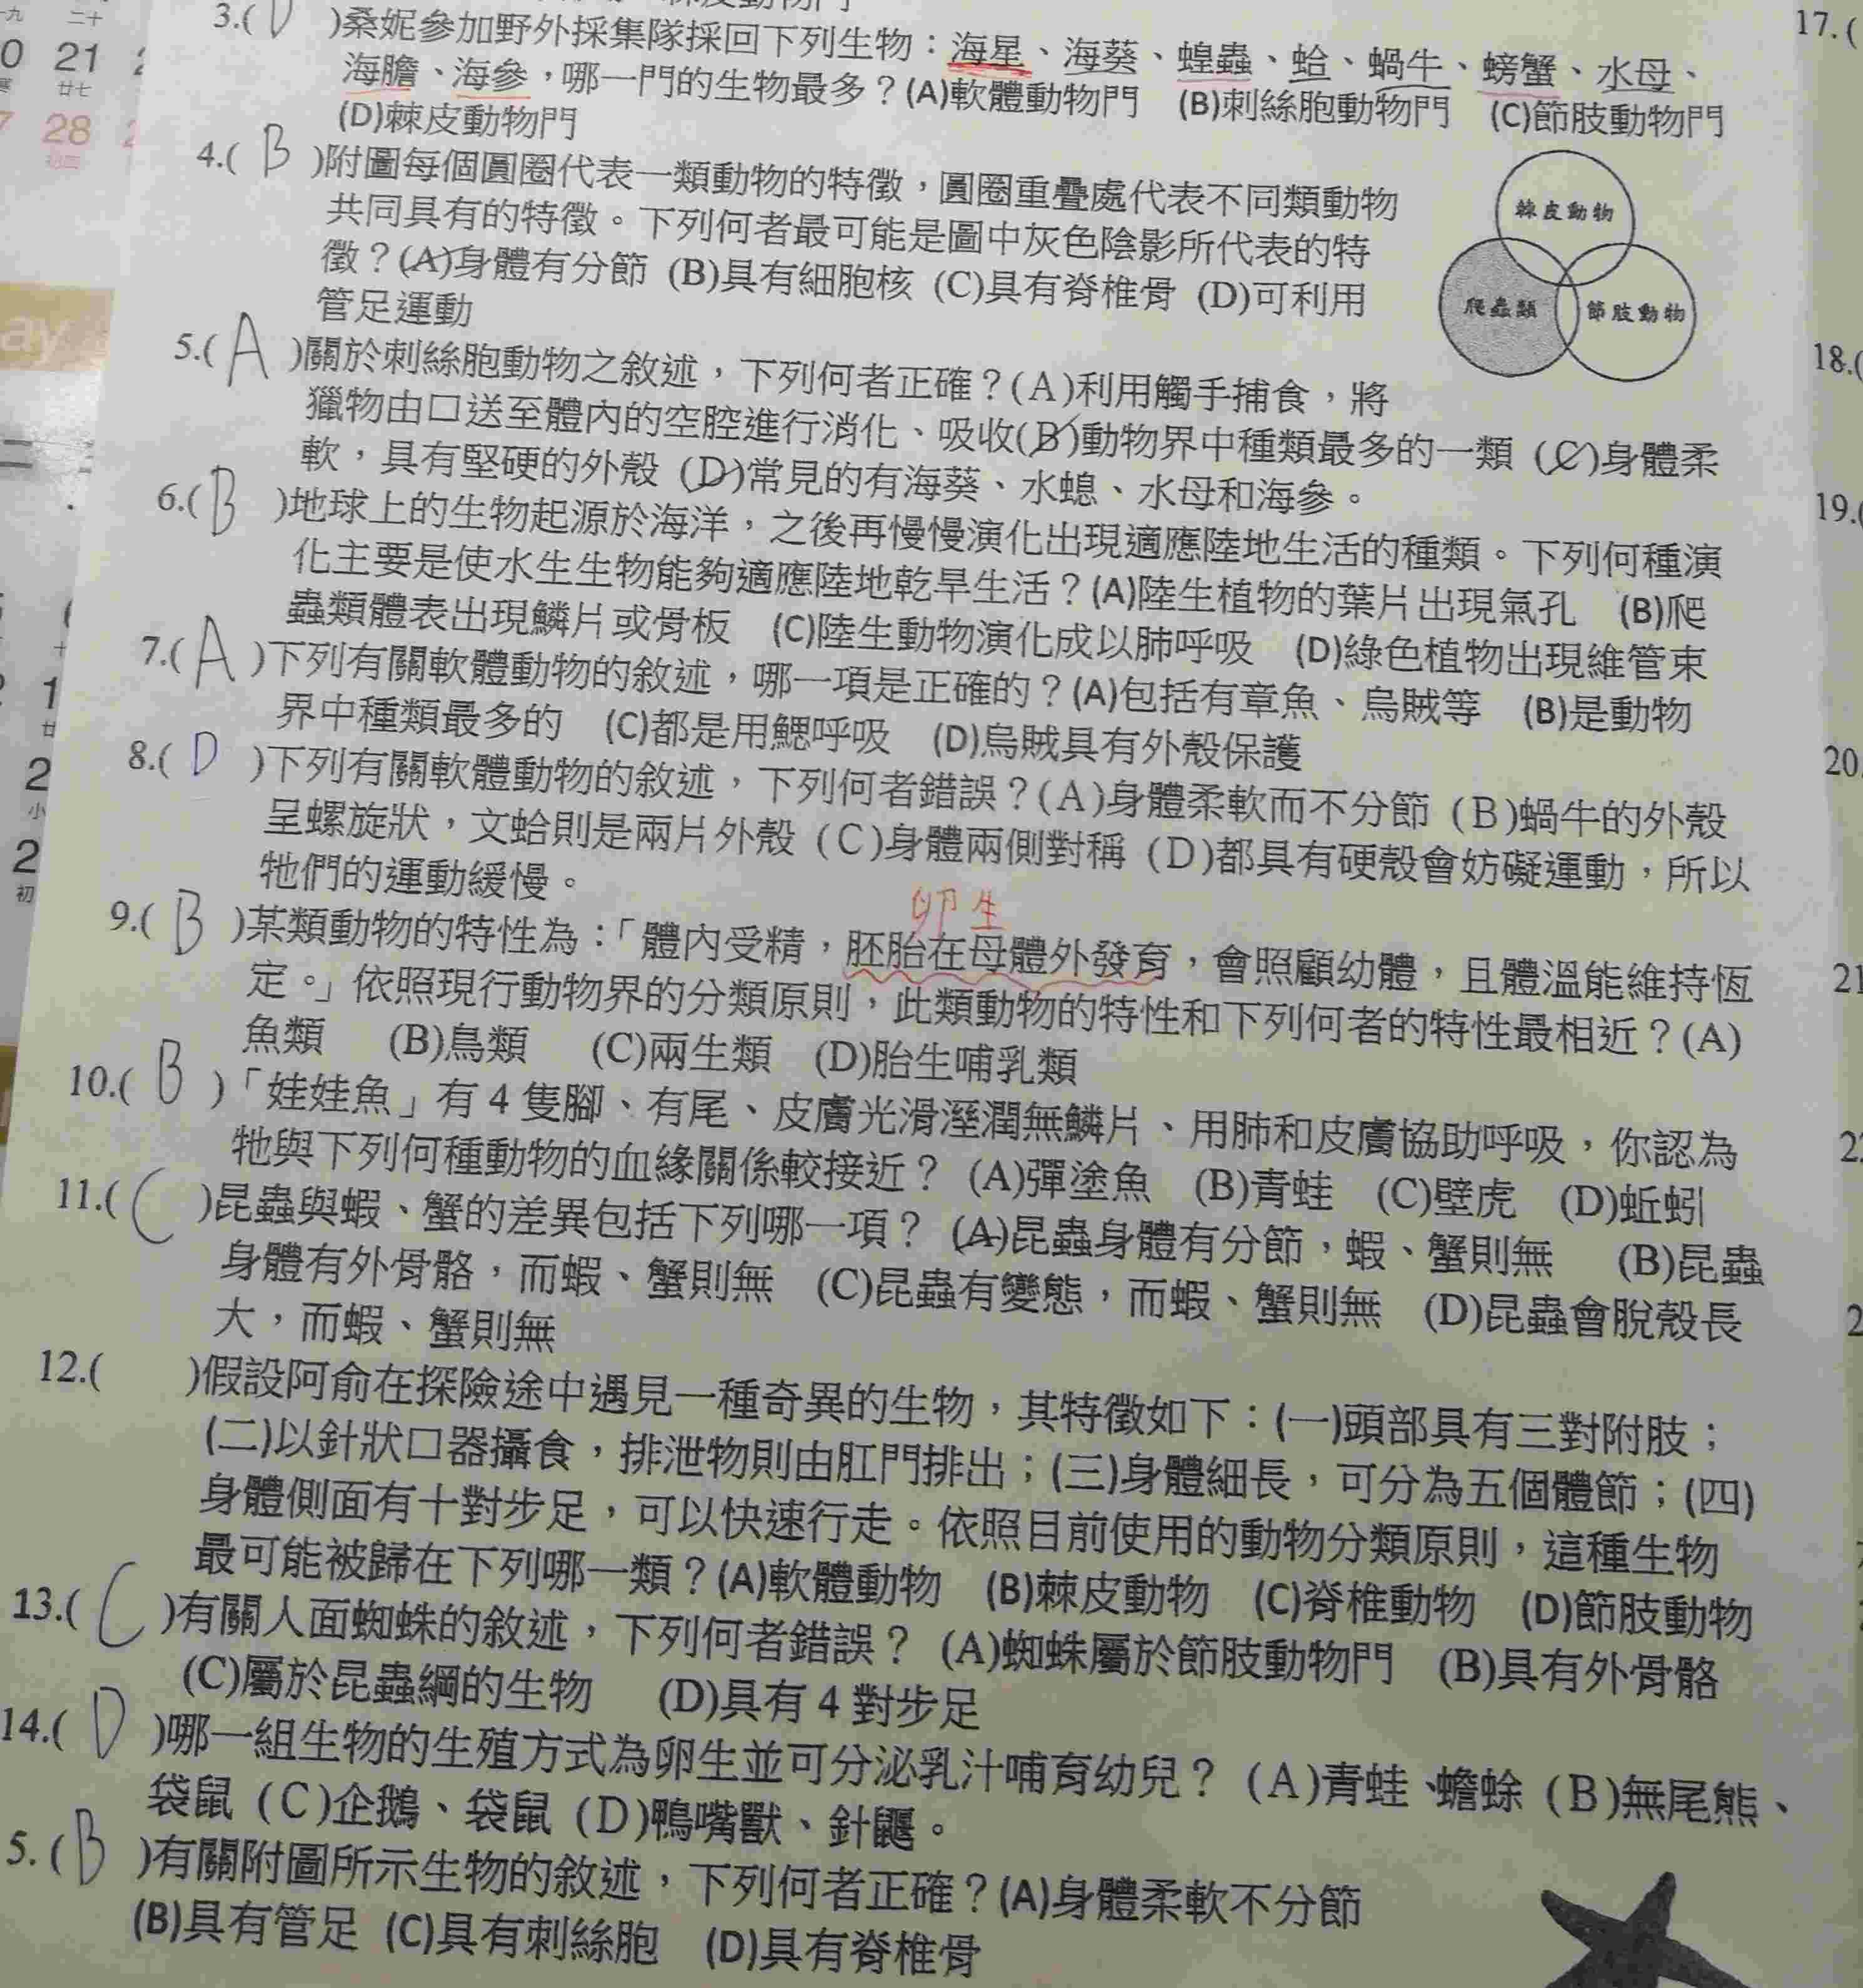 3.( D )桑妮參加野外採集隊採回下列生物：海星、海葵、蝗蟲、蛤、蝸牛、螃蟹、水母、
海膽、海參，哪一門的生物最多？(A)軟體動物門 (B)刺絲胞動物門 (C)節肢動物門
(D)棘皮動物門
4.( B )附圖每個圓圈代表一類動物的特徵，圓圈重疊處代表不同類動物
共同具有的特徵。下列何者最可能是圖中灰色陰影所代表的特
徵？(A)身體有分節 (B)具有細胞核 (C)具有脊椎骨 (D)可利用
管足運動
棘皮動物
爬蟲類
節肢動物
5.( A )關於刺絲胞動物之敘述，下列何者正確？(A)利用觸手捕食，將
獵物由口送至體內的空腔進行消化、吸收(B)動物界中種類最多的一類 (C)身體柔
軟，具有堅硬的外殼 (D)常見的有海葵、水螅、水母和海參。
6.( B )地球上的生物起源於海洋，之後再慢慢演化出現適應陸地生活的種類。下列何種演
化主要是使水生生物能夠適應陸地乾旱生活？(A)陸生植物的葉片出現氣孔 (B)爬
蟲類體表出現鱗片或骨板 (C)陸生動物演化成以肺呼吸 (D)綠色植物出現維管束
7.( A )下列有關軟體動物的敘述，哪一項是正確的？(A)包括有章魚、烏賊等 (B)是動物
界中種類最多的 (C)都是用鰓呼吸 (D)烏賊具有外殼保護
8.( D )下列有關軟體動物的敘述，下列何者錯誤？(A)身體柔軟而不分節 (B)蝸牛的外殼
呈螺旋狀，文蛤則是兩片外殼 (C)身體兩側對稱 (D)都具有硬殼會妨礙運動，所以
牠們的運動緩慢。
卵生
9.( B )某類動物的特性為：「體內受精，胚胎在母體外發育，會照顧幼體，且體溫能維持恆
定。」依照現行動物界的分類原則，此類動物的特性和下列何者的特性最相近？(A)
魚類 (B)鳥類 (C)兩生類 (D)胎生哺乳類
10.( B )「娃娃魚」有 4 隻腳、有尾、皮膚光滑溼潤無鱗片、用肺和皮膚協助呼吸，你認為
牠與下列何種動物的血緣關係較接近？ (A)彈塗魚 (B)青蛙 (C)壁虎 (D)蚯蚓
11.( C )昆蟲與蝦、蟹的差異包括下列哪一項？ (A)昆蟲身體有分節，蝦、蟹則無 (B)昆蟲
身體有外骨骼，而蝦、蟹則無 (C)昆蟲有變態，而蝦、蟹則無 (D)昆蟲會脫殼長
大，而蝦、蟹則無
12.( )假設阿俞在探險途中遇見一種奇異的生物，其特徵如下：(一)頭部具有三對附肢；
(二)以針狀口器攝食，排泄物則由肛門排出；(三)身體細長，可分為五個體節；(四)
身體側面有十對步足，可以快速行走。依照目前使用的動物分類原則，這種生物
最可能被歸在下列哪一類？(A)軟體動物 (B)棘皮動物 (C)脊椎動物 (D)節肢動物
13.( C )有關人面蜘蛛的敘述，下列何者錯誤？ (A)蜘蛛屬於節肢動物門 (B)具有外骨骼
(C)屬於昆蟲綱的生物 (D)具有 4 對步足
14.( D )哪一組生物的生殖方式為卵生並可分泌乳汁哺育幼兒？ (A)青蛙、蟾蜍 (B)無尾熊、
袋鼠 (C)企鵝、袋鼠 (D)鴨嘴獸、針鼴。
5.( B )有關附圖所示生物的敘述，下列何者正確？(A)身體柔軟不分節
(B)具有管足 (C)具有刺絲胞 (D)具有脊椎骨
17.(
18.(
19.(
20.
21
二十
21
廿七
28
初四
ay